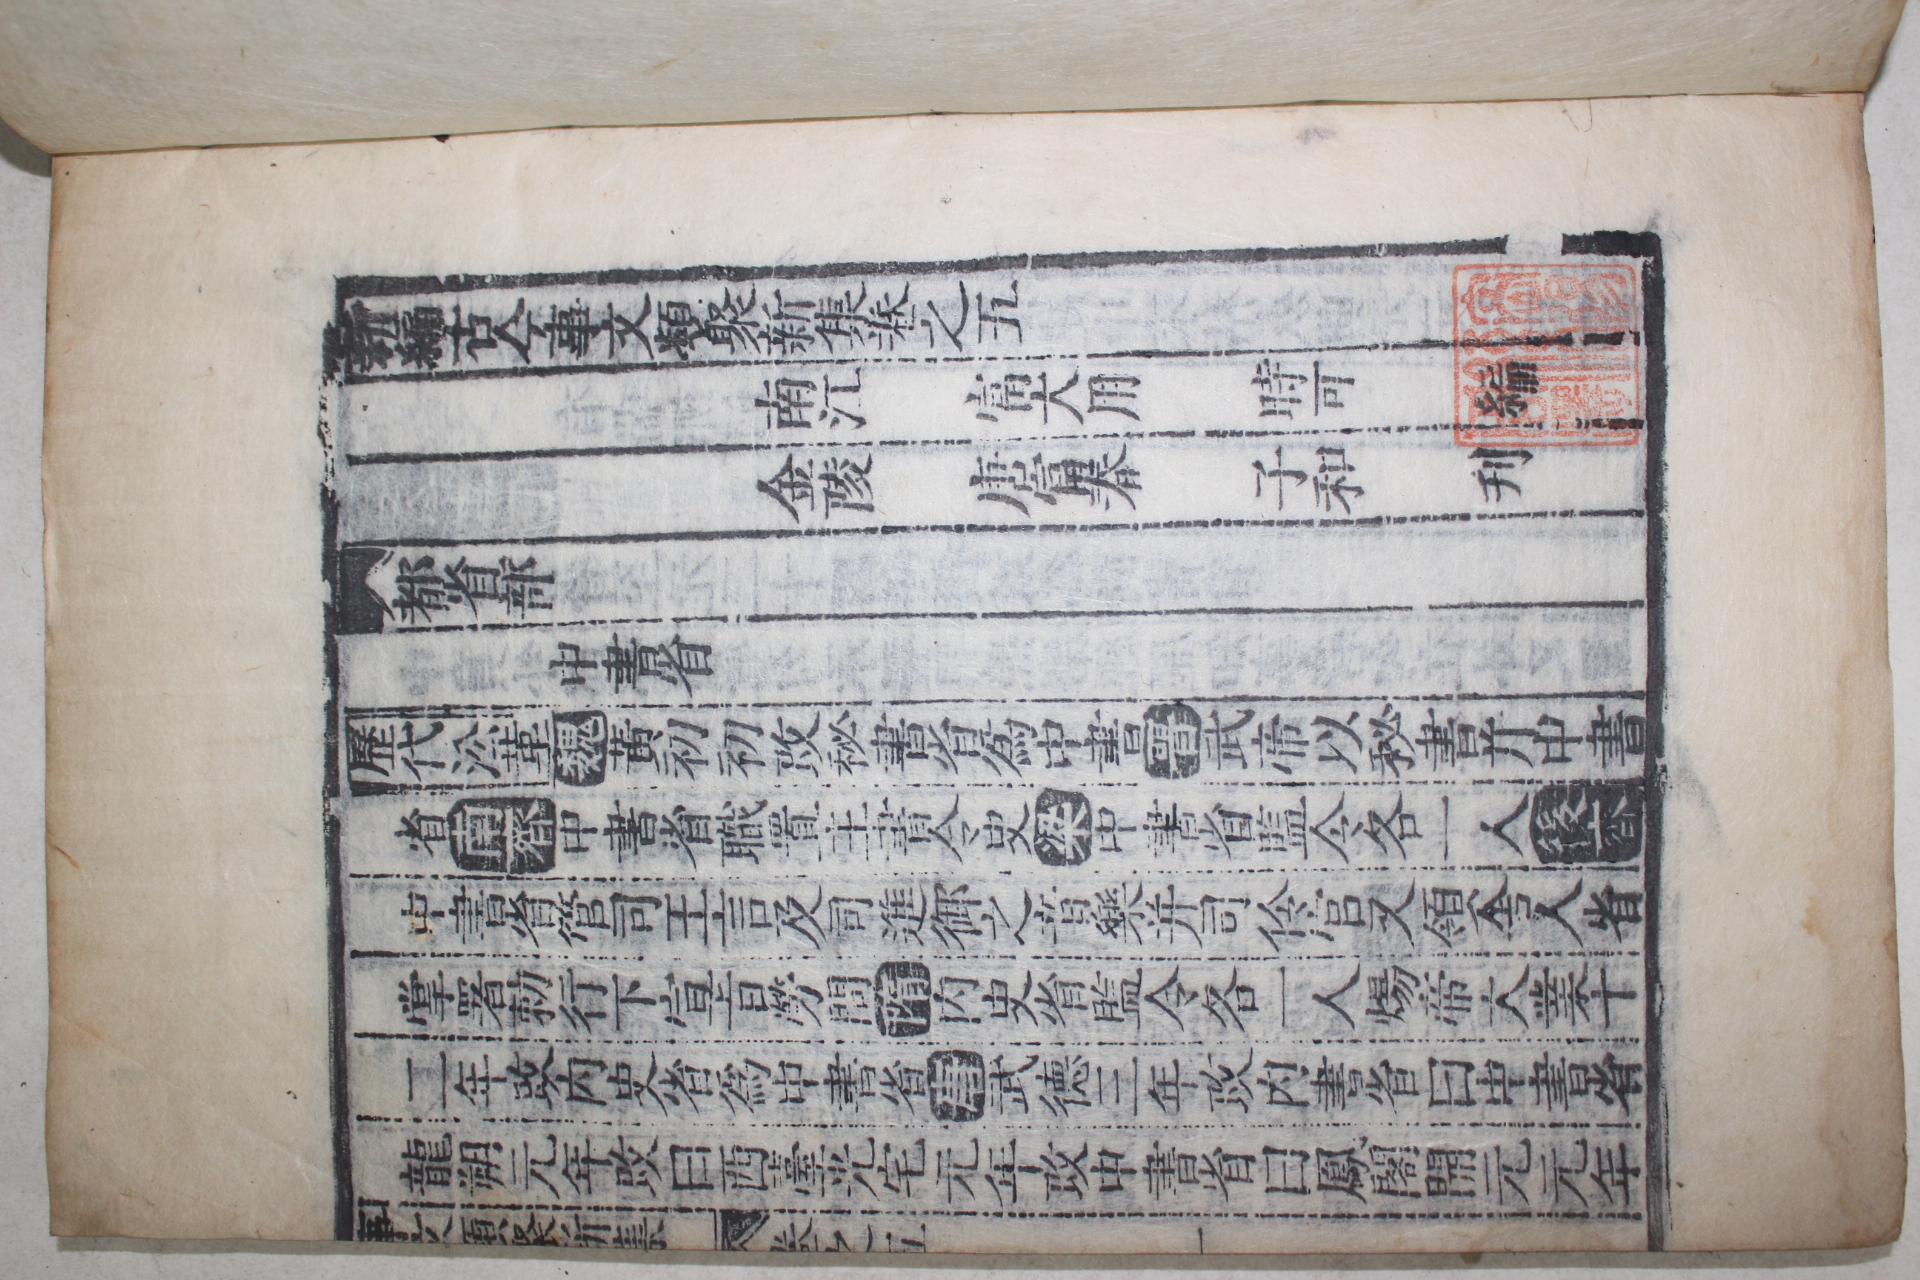 新編古今事文類聚新集卷之五
南江 富大用 時可 編
金陵 唐富春 子和 刊
都省部
中書省
歷代沿革魏黃初初改秘書省爲中書晉武帝以秘書并中書
省南齊中書省職置主書令史梁中書省監令各一人後齊
中書省管司王言及司進御之音樂并司伶官又領舍人省
掌署勅行下宣旨勞問隋内史省監令各一人煬帝大業十
二年改内史省爲中書省唐武德三年改内書省曰中書省
龍朔元年改曰西臺光宅元年改中書省曰鳳閣開元元年
事文類聚新集 卷之五 一